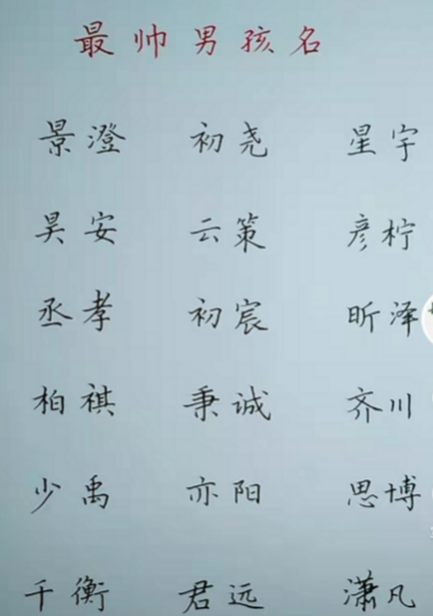 最帅男孩名
景澄 初尧 星宇
昊安 云策 彦柠
丞孝 初宸 昕泽
柏祺 秉诚 齐川
少禹 亦阳 思博
千衡 君远 潇凡